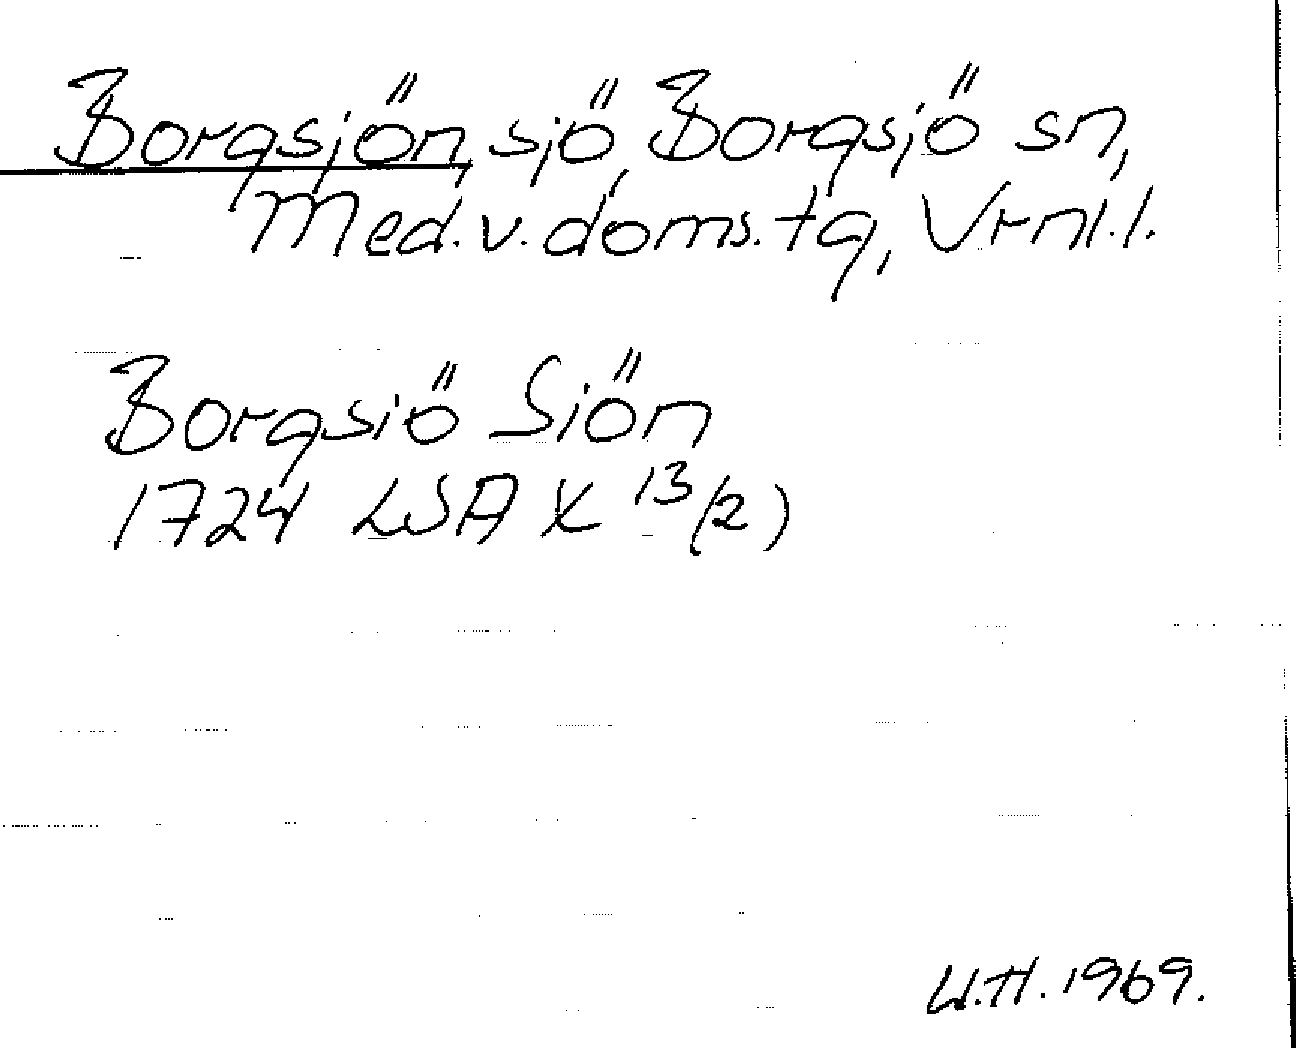 Borgsjön, sjö, Borgsjö sn,
Med.v.doms.tg, Vrnl.l.
Borgsiö Siön
1724 LSA X 13/2)
U.H. 1969.